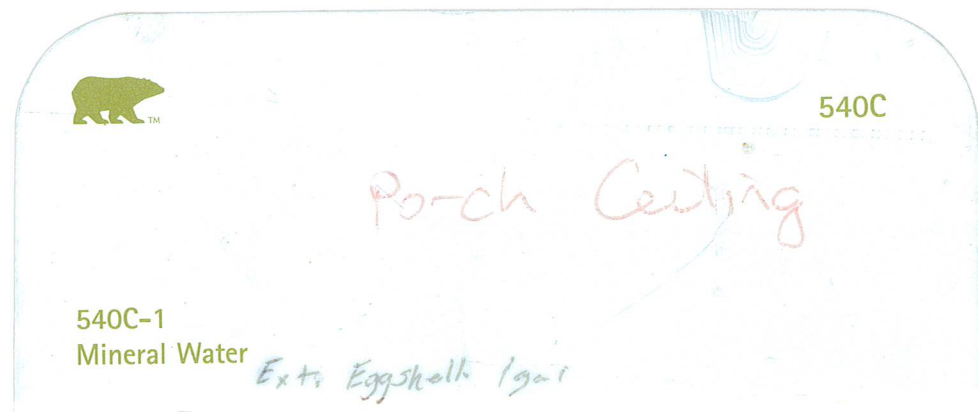 TM
540C
Porch Ceiling
540C-1
Mineral Water
Ext. Eggshell 1gal